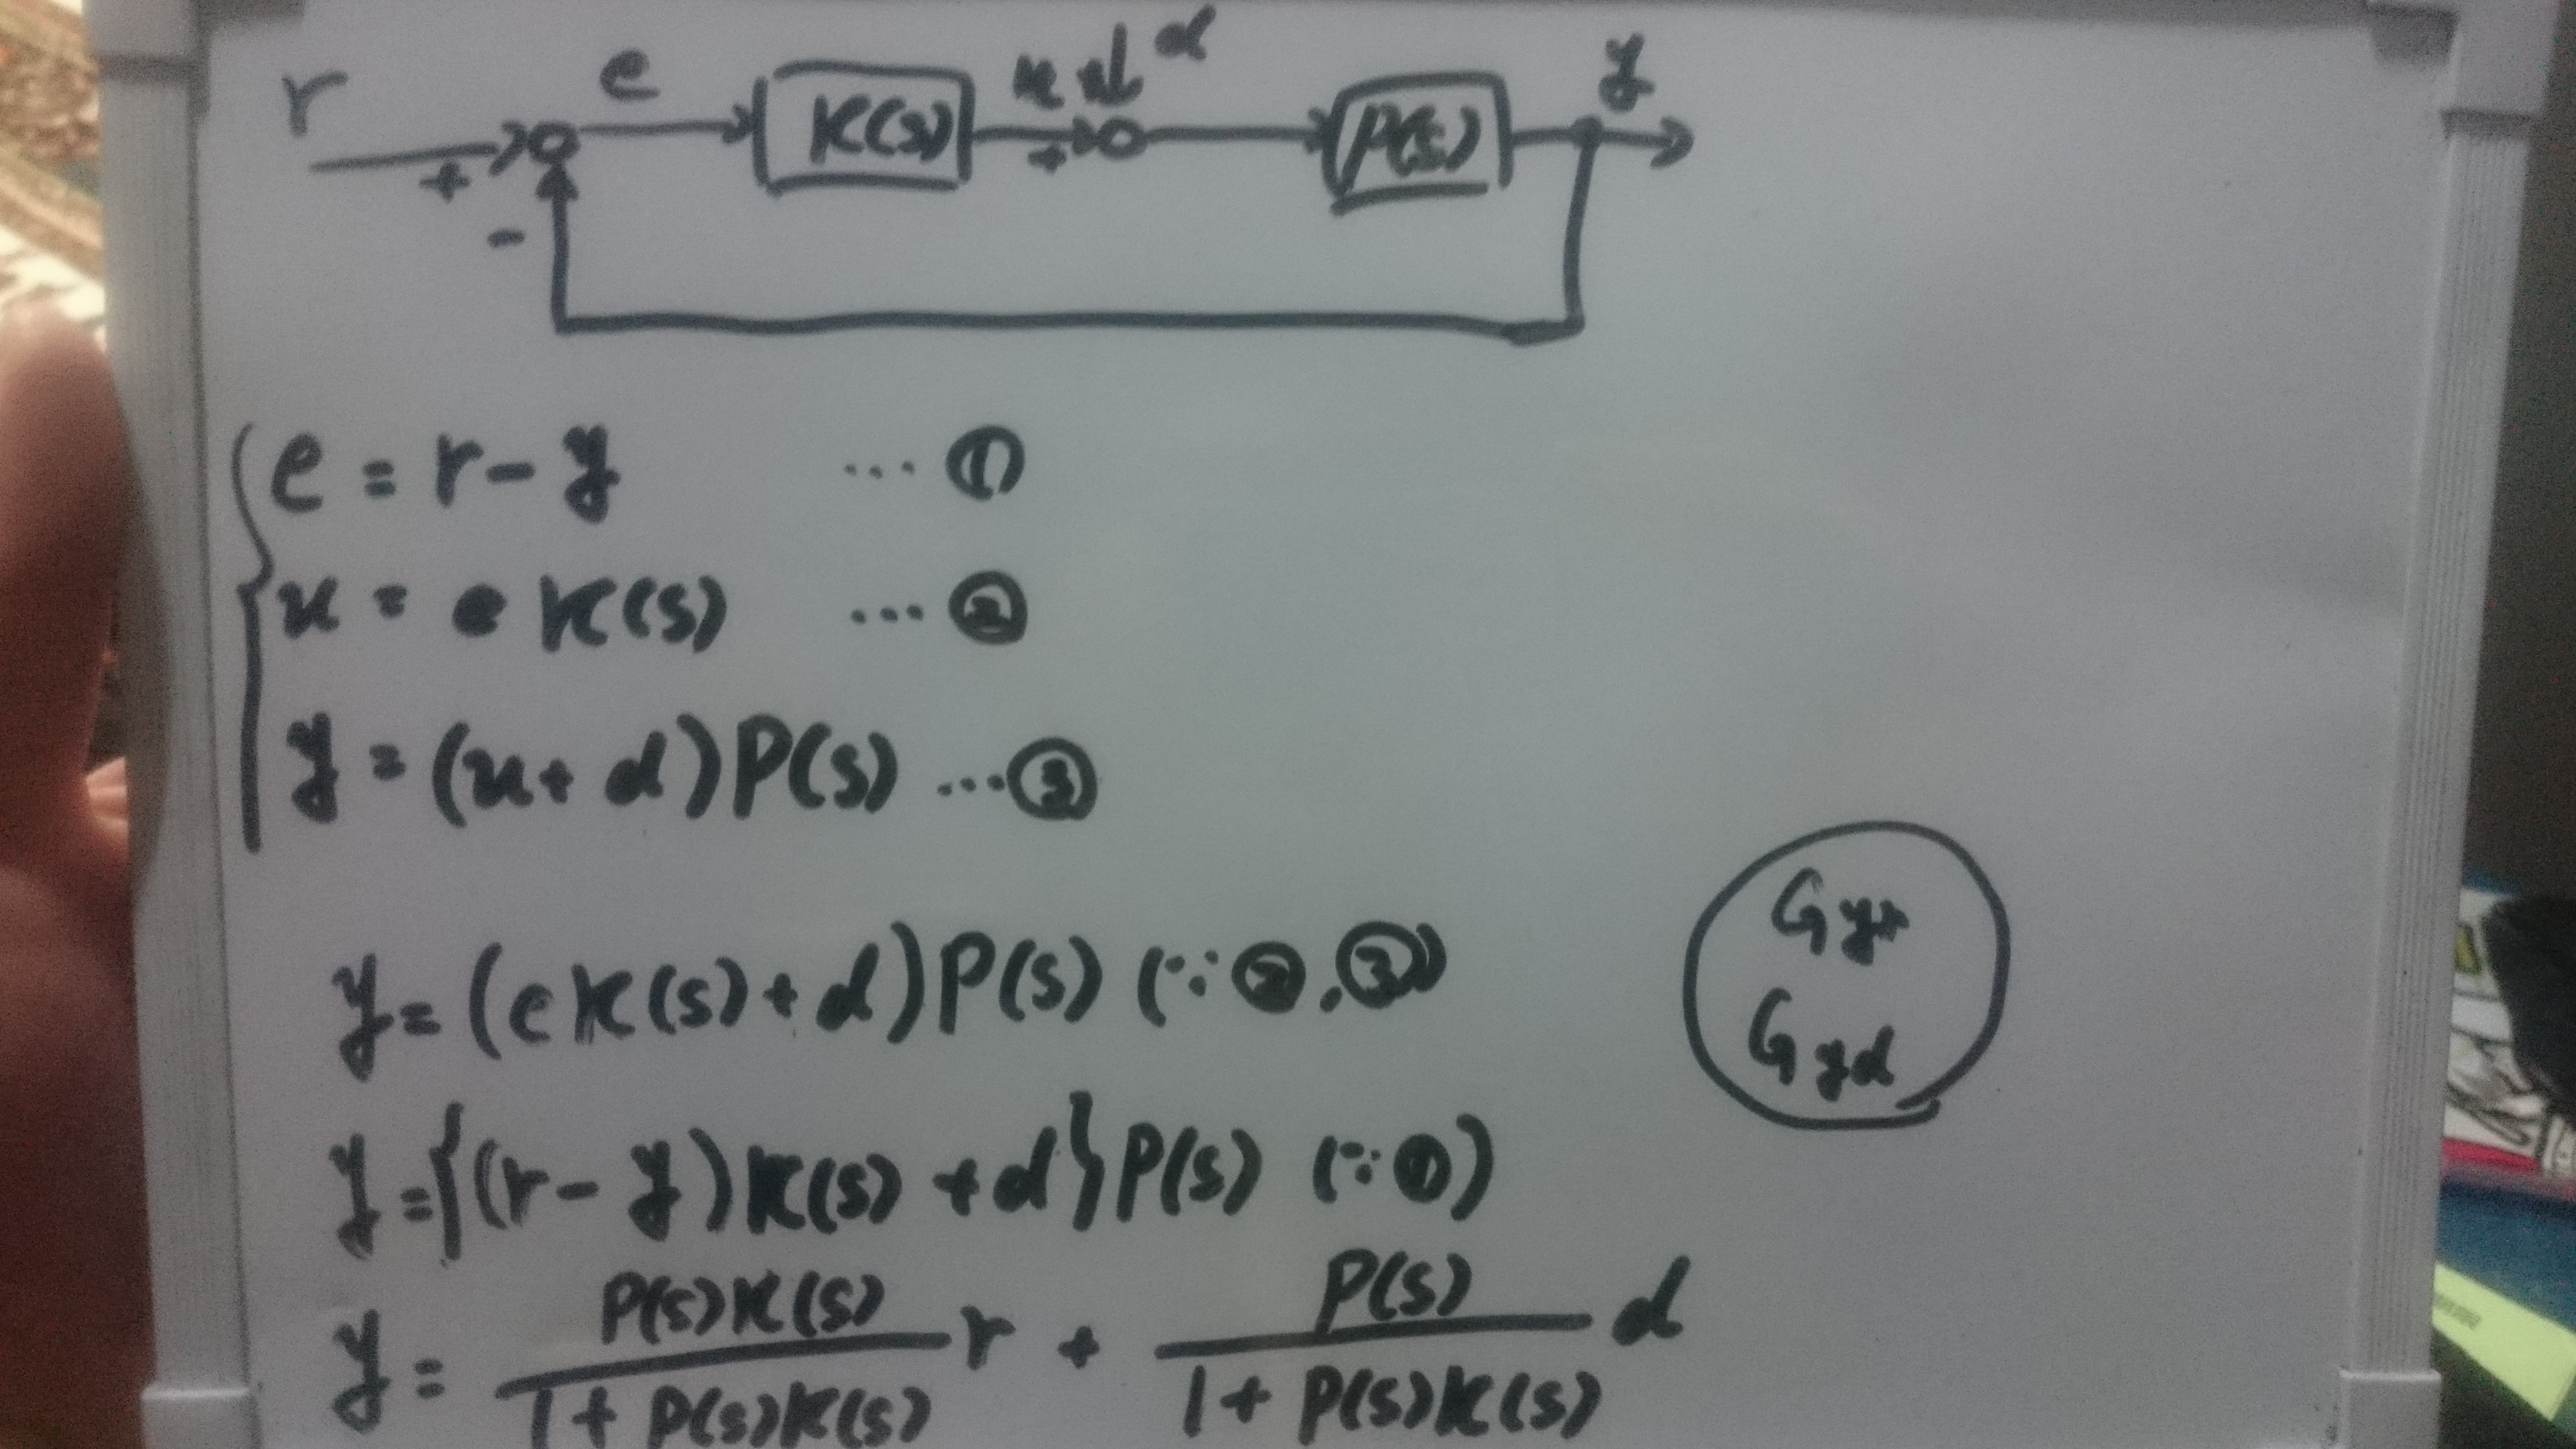 r + - e K(s) u + d P(s) y
e = r - y ... ①
u = e K(s) ... ②
y = (u + d) P(s) ... ③
y = (e K(s) + d) P(s) (∵ ②, ③)
Gyr
Gyd
y = {(r - y) K(s) + d} P(s) (∵ ①)
y = P(s)K(s) / 1 + P(s)K(s) r + P(s) / 1 + P(s)K(s) d